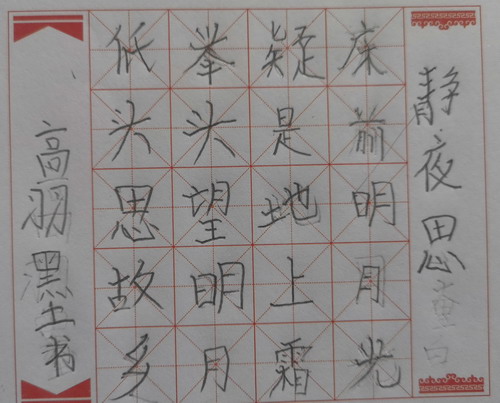 静夜思
床前明月光
疑是地上霜
举头望明月
低头思故乡
高羽墨书